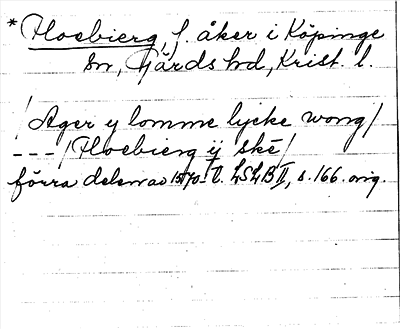 *Hoebierg, f. åker i Köpinge
sn, Gärds hd, Krist. l.
/Ager y lomme lycke wong/
---/Hoebierg ij ske/
förra delen av 1570-t. LSLB II, s. 166. orig.